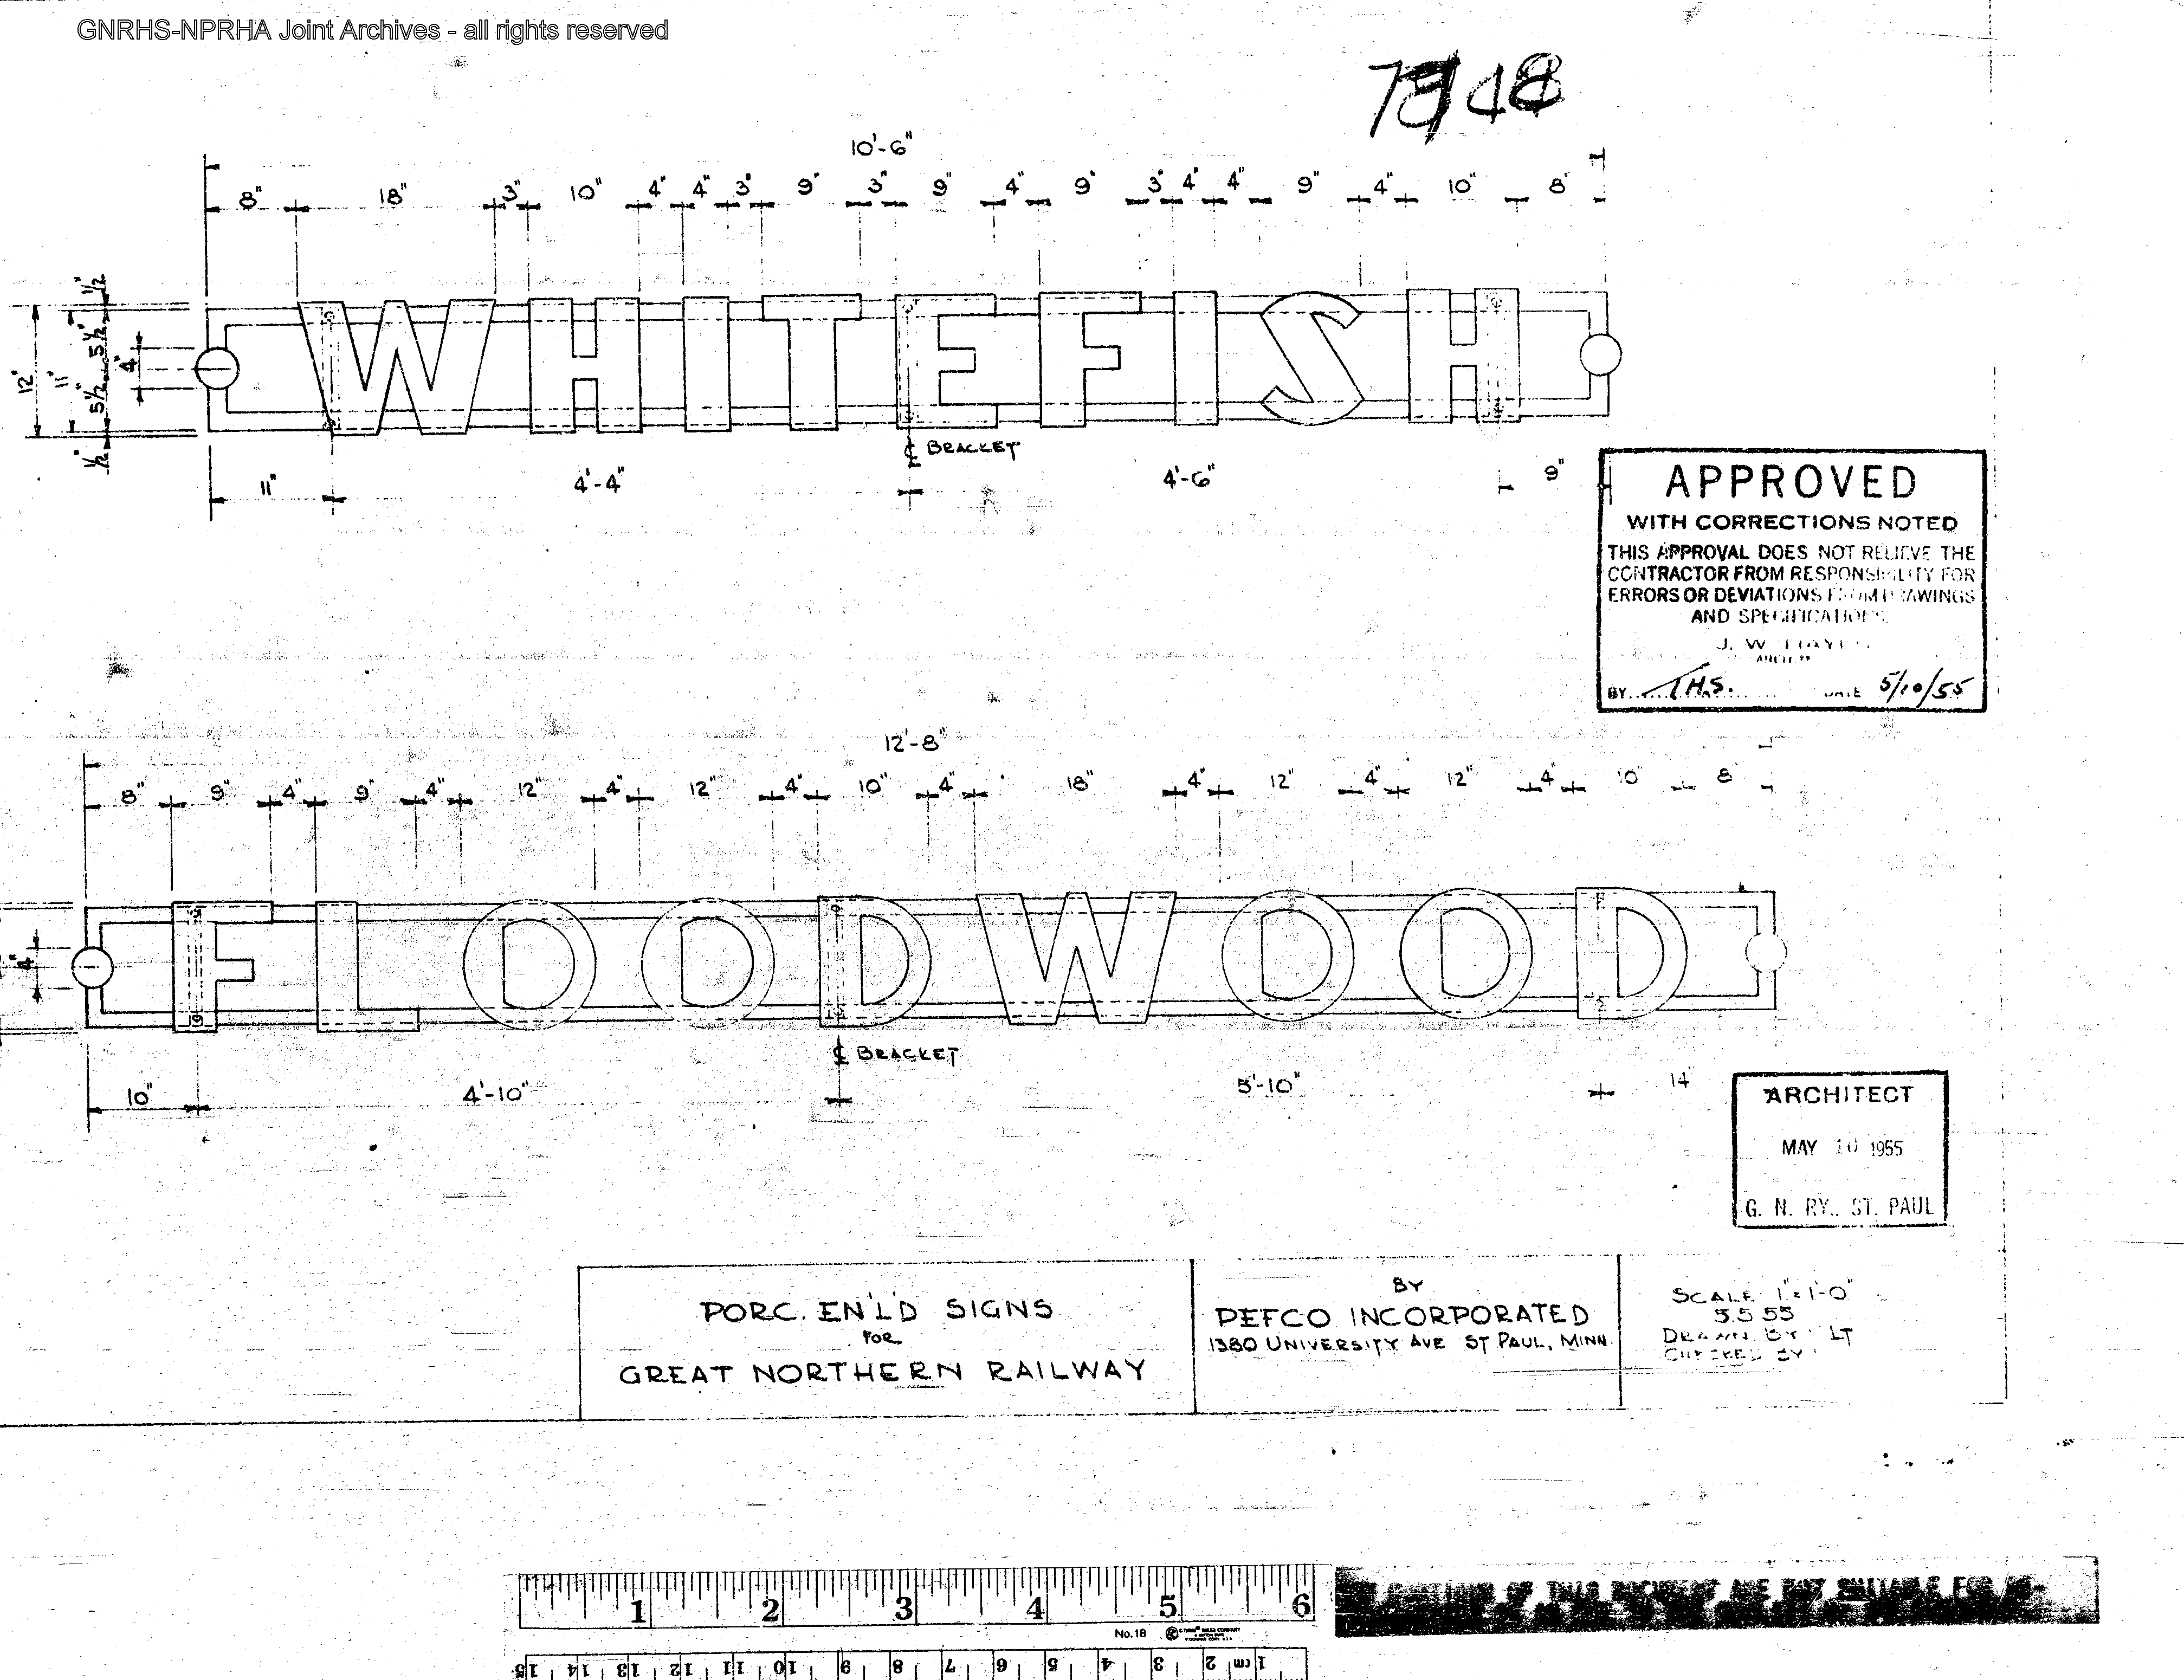 GNRHS-NPRHA Joint Archives - all rights reserved
10'-6"
8" 18" 3" 10" 4" 4" 3" 9" 3" 9" 4" 9" 3" 4" 4" 9" 4" 10" 8"
1/2"
5 1/2"
12" 11" 4"
5 1/2"
1/2"
WHITEFISH
℄ BRACKET
11" 4'-4" 4'-6" 9"
APPROVED
WITH CORRECTIONS NOTED
THIS APPROVAL DOES NOT RELIEVE THE
CONTRACTOR FROM RESPONSIBILITY FOR
ERRORS OR DEVIATIONS FROM DRAWINGS
AND SPECIFICATIONS
J. W.
BY T.H.S. DATE 5/10/55
12'-8"
8" 9" 4" 9" 4" 12" 4" 12" 4" 10" 4" 18" 4" 12" 4" 12" 4" 10" 8
4"
FLOODWOOD
℄ BRACKET
10" 4'-10" 5'-10" 14
ARCHITECT
MAY 10 1955
G. N. RY., ST. PAUL
PORC. EN'L'D SIGNS
FOR
GREAT NORTHERN RAILWAY
BY
PEFCO INCORPORATED
1380 UNIVERSITY AVE ST PAUL, MINN.
SCALE 1"=1'-0"
5.5.55
DRAWN BY LT
CHECKED BY
1 2 3 4 5 6
No. 18
15 14 13 12 11 10 9 8 7 6 5 4 3 2 cm 1